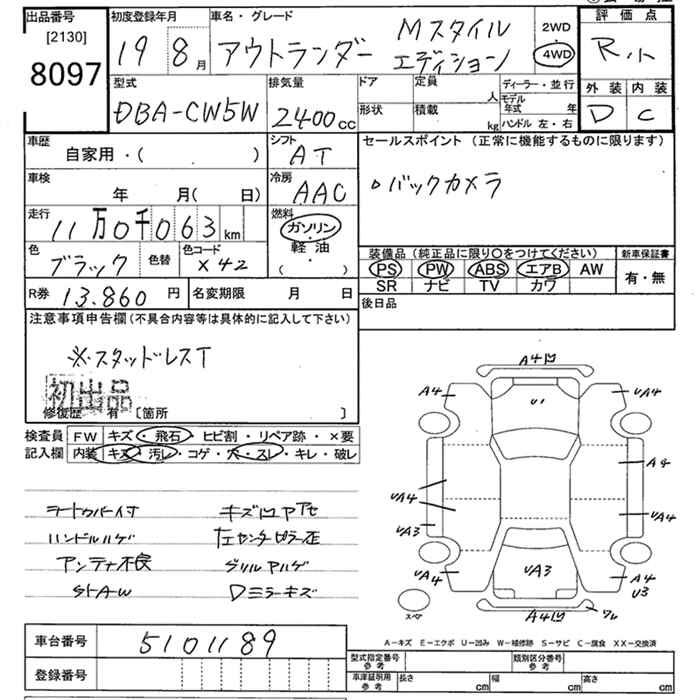 出品番号 [2130] 8097
初度登録年月 19 8月
車名・グレード アウトランダー Mスタイル エディション
2WD 4WD
評価点 R.
外装 内装
D C
型式 DBA-CW5W
排気量 2400cc
ドア 形状
定員 人
積載 kg
ディーラー・並行
モデル年式 年
ハンドル 左・右
車歴 自家用・( )
シフト AT
セールスポイント (正常に機能するものに限ります)
・バックカメラ
車検 年 月( 日)
冷房 AAC
走行 11万0千063km
燃料 ガソリン・軽油 ( ・ )
色 ブラック 色替
色コード X42
装備品 (純正品に限り○をつけてください)
PS PW ABS エアB AW
SR ナビ TV カワ
新車保証書 有・無
R券 13.860円
名変期限 月 日
後日品
注意事項申告欄 (不具合内容等は具体的に記入して下さい)
※スタッドレスT
初出品
修復歴 有 [箇所 ]
検査員記入欄
FW キズ・飛石・ヒビ割・リペア跡・×要
内装 キズ・汚レ・コゲ・穴・スレ・キレ・破レ
オートクルバー付 キズ凹アセ
ハンドルハゲ 左センターピラー歪
アンテナ不良 グリルハゲ
Dミラーキズ
A4凹
A4 U1 UA4
A4
UA4 UA4
UA3
UA4 UA3 A4
U3
スペア A4凹 ワレ
A-キズ E-エクボ U-凹み W-補修跡 S-サビ C-腐食 XX-交換済
車台番号 5101189
登録番号
型式指定番号 参考
類別区分番号 参考
車庫証明用 参考 長さ cm 幅 cm 高さ cm